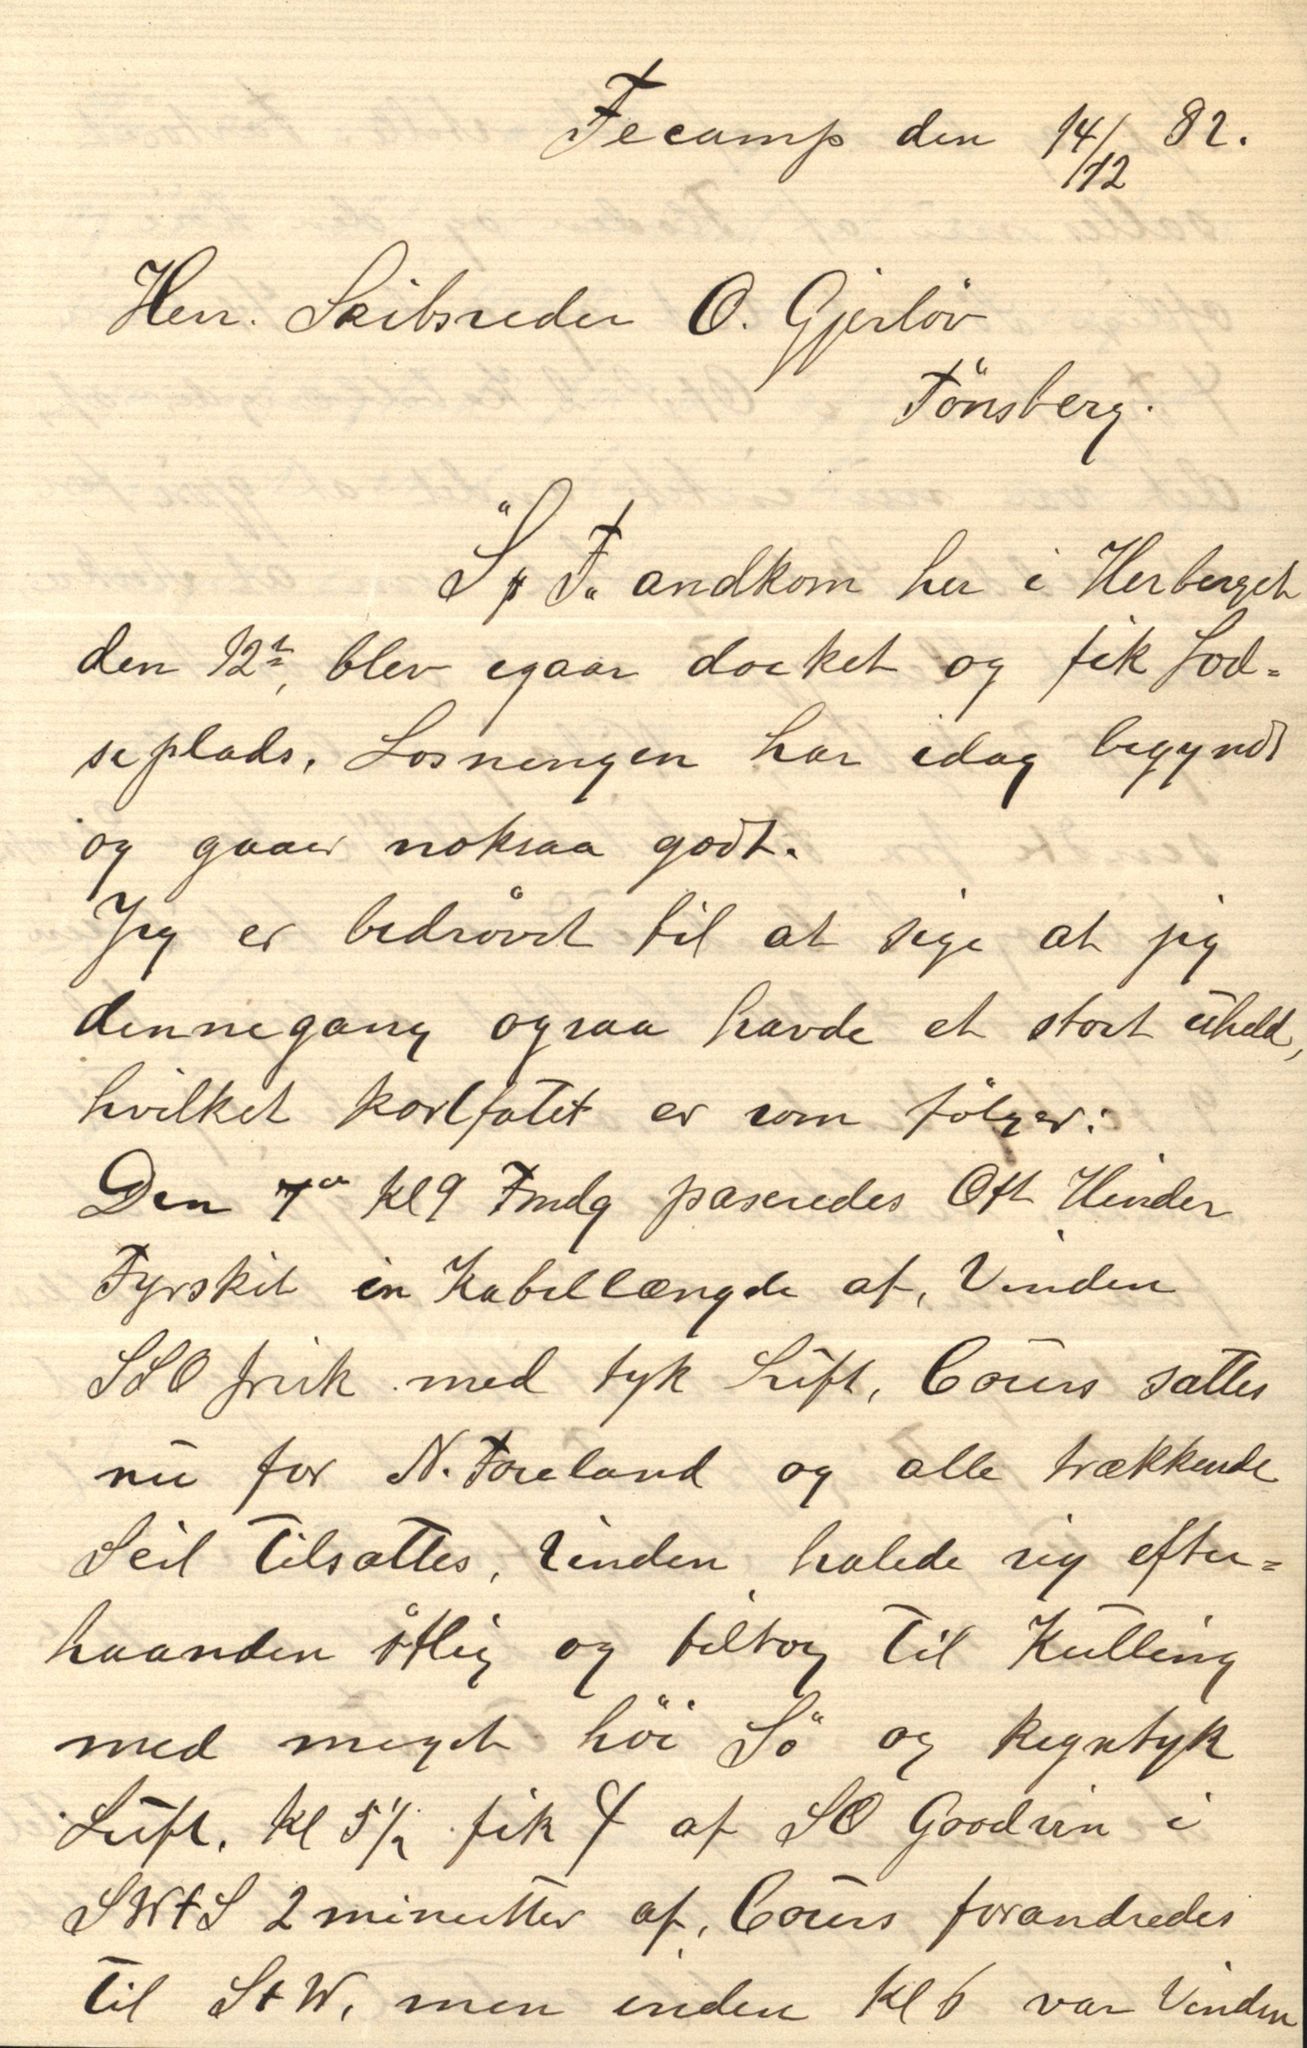 Fecamp den 14/12 82.
Herr. Skibsreder O. Gjerlöv
Tönsberg.
andkom her i Herberget
den 12te, blev igaar docket og fik Lod-
seplads. Losningen har idag begyndt
og gaaer noksaa godt.
Jeg er bedrövet til at sige at jeg
dennegang ogsaa havde et stort uheld,
hvilket kortfatet er som fölger:
Den 7de Kl 9 Fmdg paseredes Oft Hinder
Fyrskib en Kabellængde af, Vinden
SSO frisk med tyk Luft, Cours sattes
nu for N. Foreland og alle trækkende
Seil tilsattes, Vinden halede sig efter-
haanden östlig og tiltog til Kulling
med meget höi Sö og Regntyk
Luft. Kl 5 1/2 fik af SO Goodvin i
SWtS 2 minutter af, Cours forandredes
til StW, men inden Kl 6 var Vinden